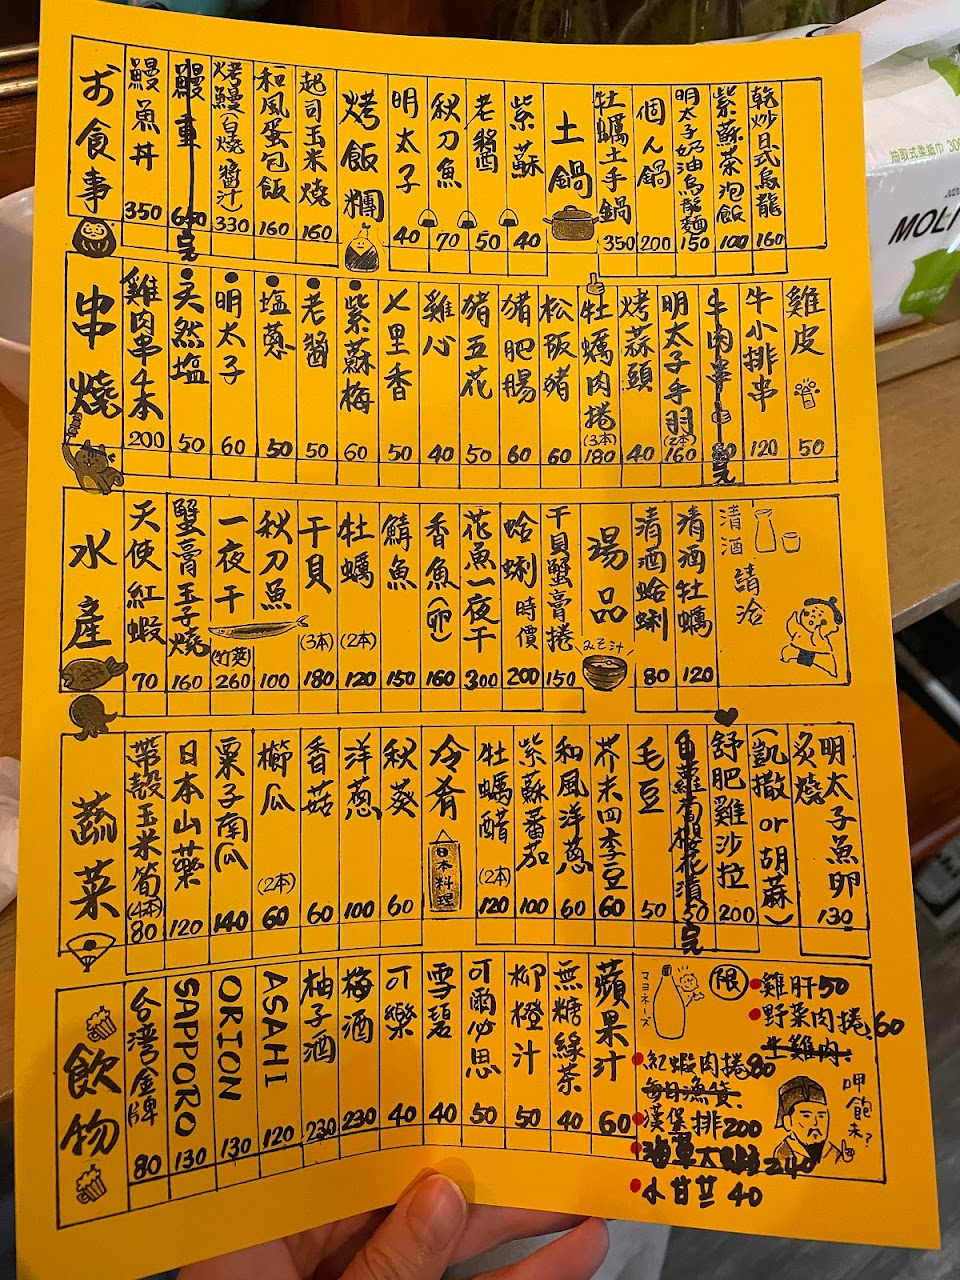 お食事
鰻魚丼 350
鰻重 650 完
烤鰻(白燒 醬汁) 330
和風蛋包飯 160
起司玉米燒 160
烤飯糰
明太子 40
秋刀魚 70
老醬 50
紫蘇 40
土鍋
牡蠣土手鍋 350
個人鍋 200
明太子奶油烏龍麵 150
紫蘇茶泡飯 100
乾炒日式烏龍 160
串燒
雞肉串4本 200
天然塩 50
明太子 60
塩蔥 50
老醬 50
紫蘇梅 60
七里香 50
雞心 40
豬五花 50
豬肥腸 60
松阪豬 60
牡蠣肉捲 (3本) 180
烤蒜頭 40
明太子手羽 (2本) 160
牛肉串 完
牛小排串 120
雞皮 50
水產
天使紅蝦 70
蟹膏玉子燒 160
一夜干 (竹莢) 260
秋刀魚 100
干貝 (3本) 180
牡蠣 (2本) 120
鯖魚 150
香魚(卵) 160
花魚一夜干 300
蛤蜊 時價 200
干貝蟹膏捲 150
湯品
みそ汁
清酒蛤蜊 80
清酒牡蠣 120
清酒請洽
蔬菜
帶殼玉米筍 (4本) 80
日本山藥 120
栗子南瓜 140
櫛瓜 (2本) 60
香菇 60
洋蔥 100
秋葵 60
冷肴
日本料理
牡蠣醋 (2本) 120
紫蘇蕃茄 100
和風洋蔥 60
芥末四季豆 60
毛豆 50
白蘿蔔櫻花漬 50 完
舒肥雞沙拉 200
(凱撒or胡蔴)
炙燒
明太子魚卵 130
飲物
台灣金牌 80
SAPPORO 130
ORION 130
ASAHI 120
柚子酒 230
梅酒 230
可樂 40
雪碧 40
可爾必思 50
柳橙汁 50
無糖綠茶 40
蘋果汁 60
マヨネーズ
限
雞肝50
野菜肉捲60
紅蝦肉捲80
每日漁貨
漢堡排200
240
小甘芷 40
呷飽未?
抽取式柔紙巾